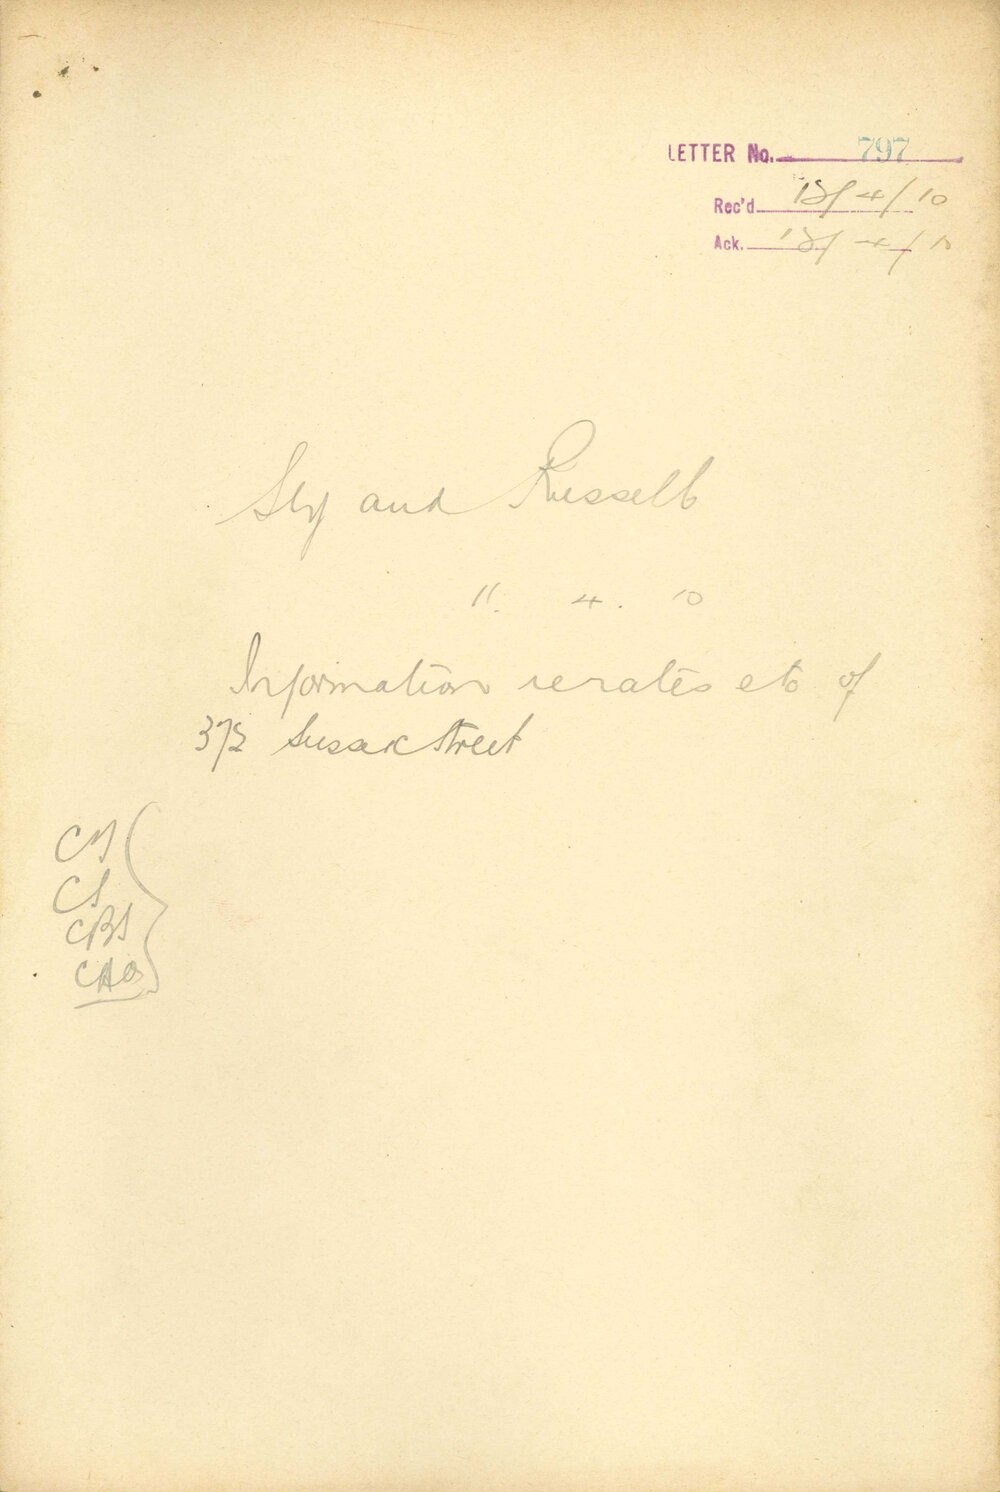 LETTER No. 797
Rec'd 12/4/10
Ack. 12/4/10
Sly and Russell
11. 4. 10
Information re rates etc of
Sussex Street
CS
CBS